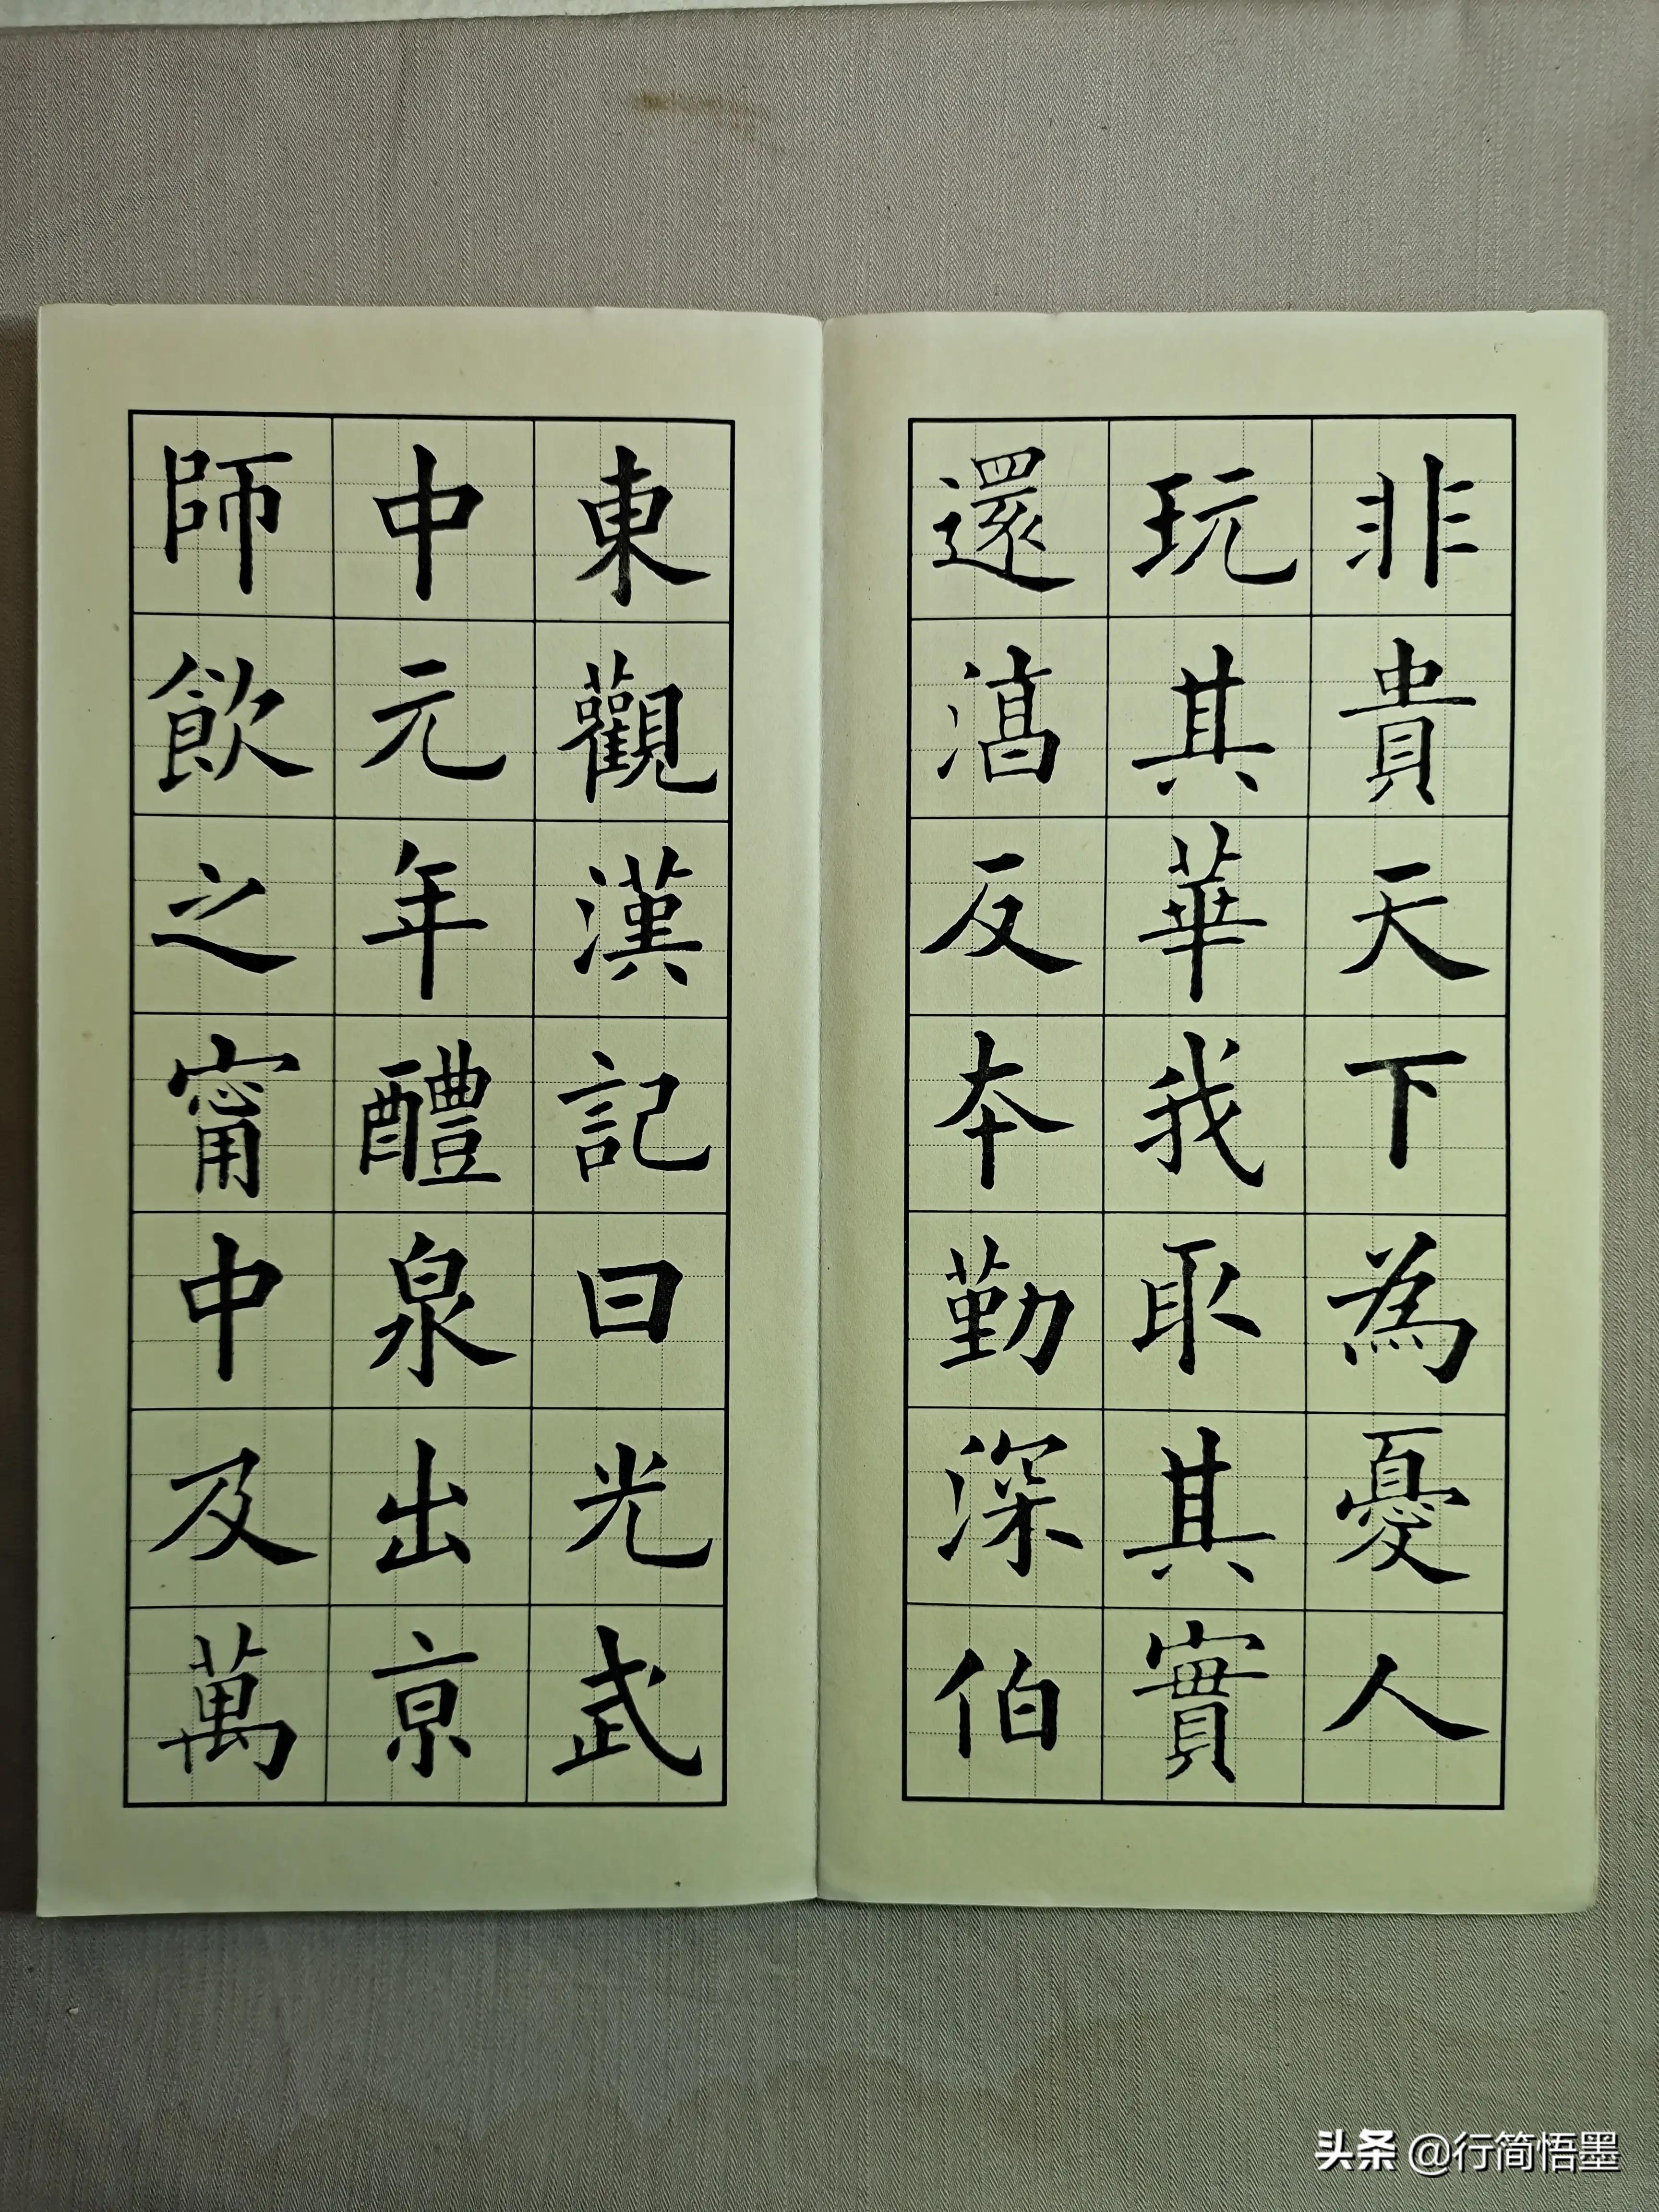 非貴天下為憂人
玩其華我取其實
還淳反本勤深伯
東觀漢記曰光武
中元年醴泉出京
師飲之甯中及萬
头条 @行简悟墨